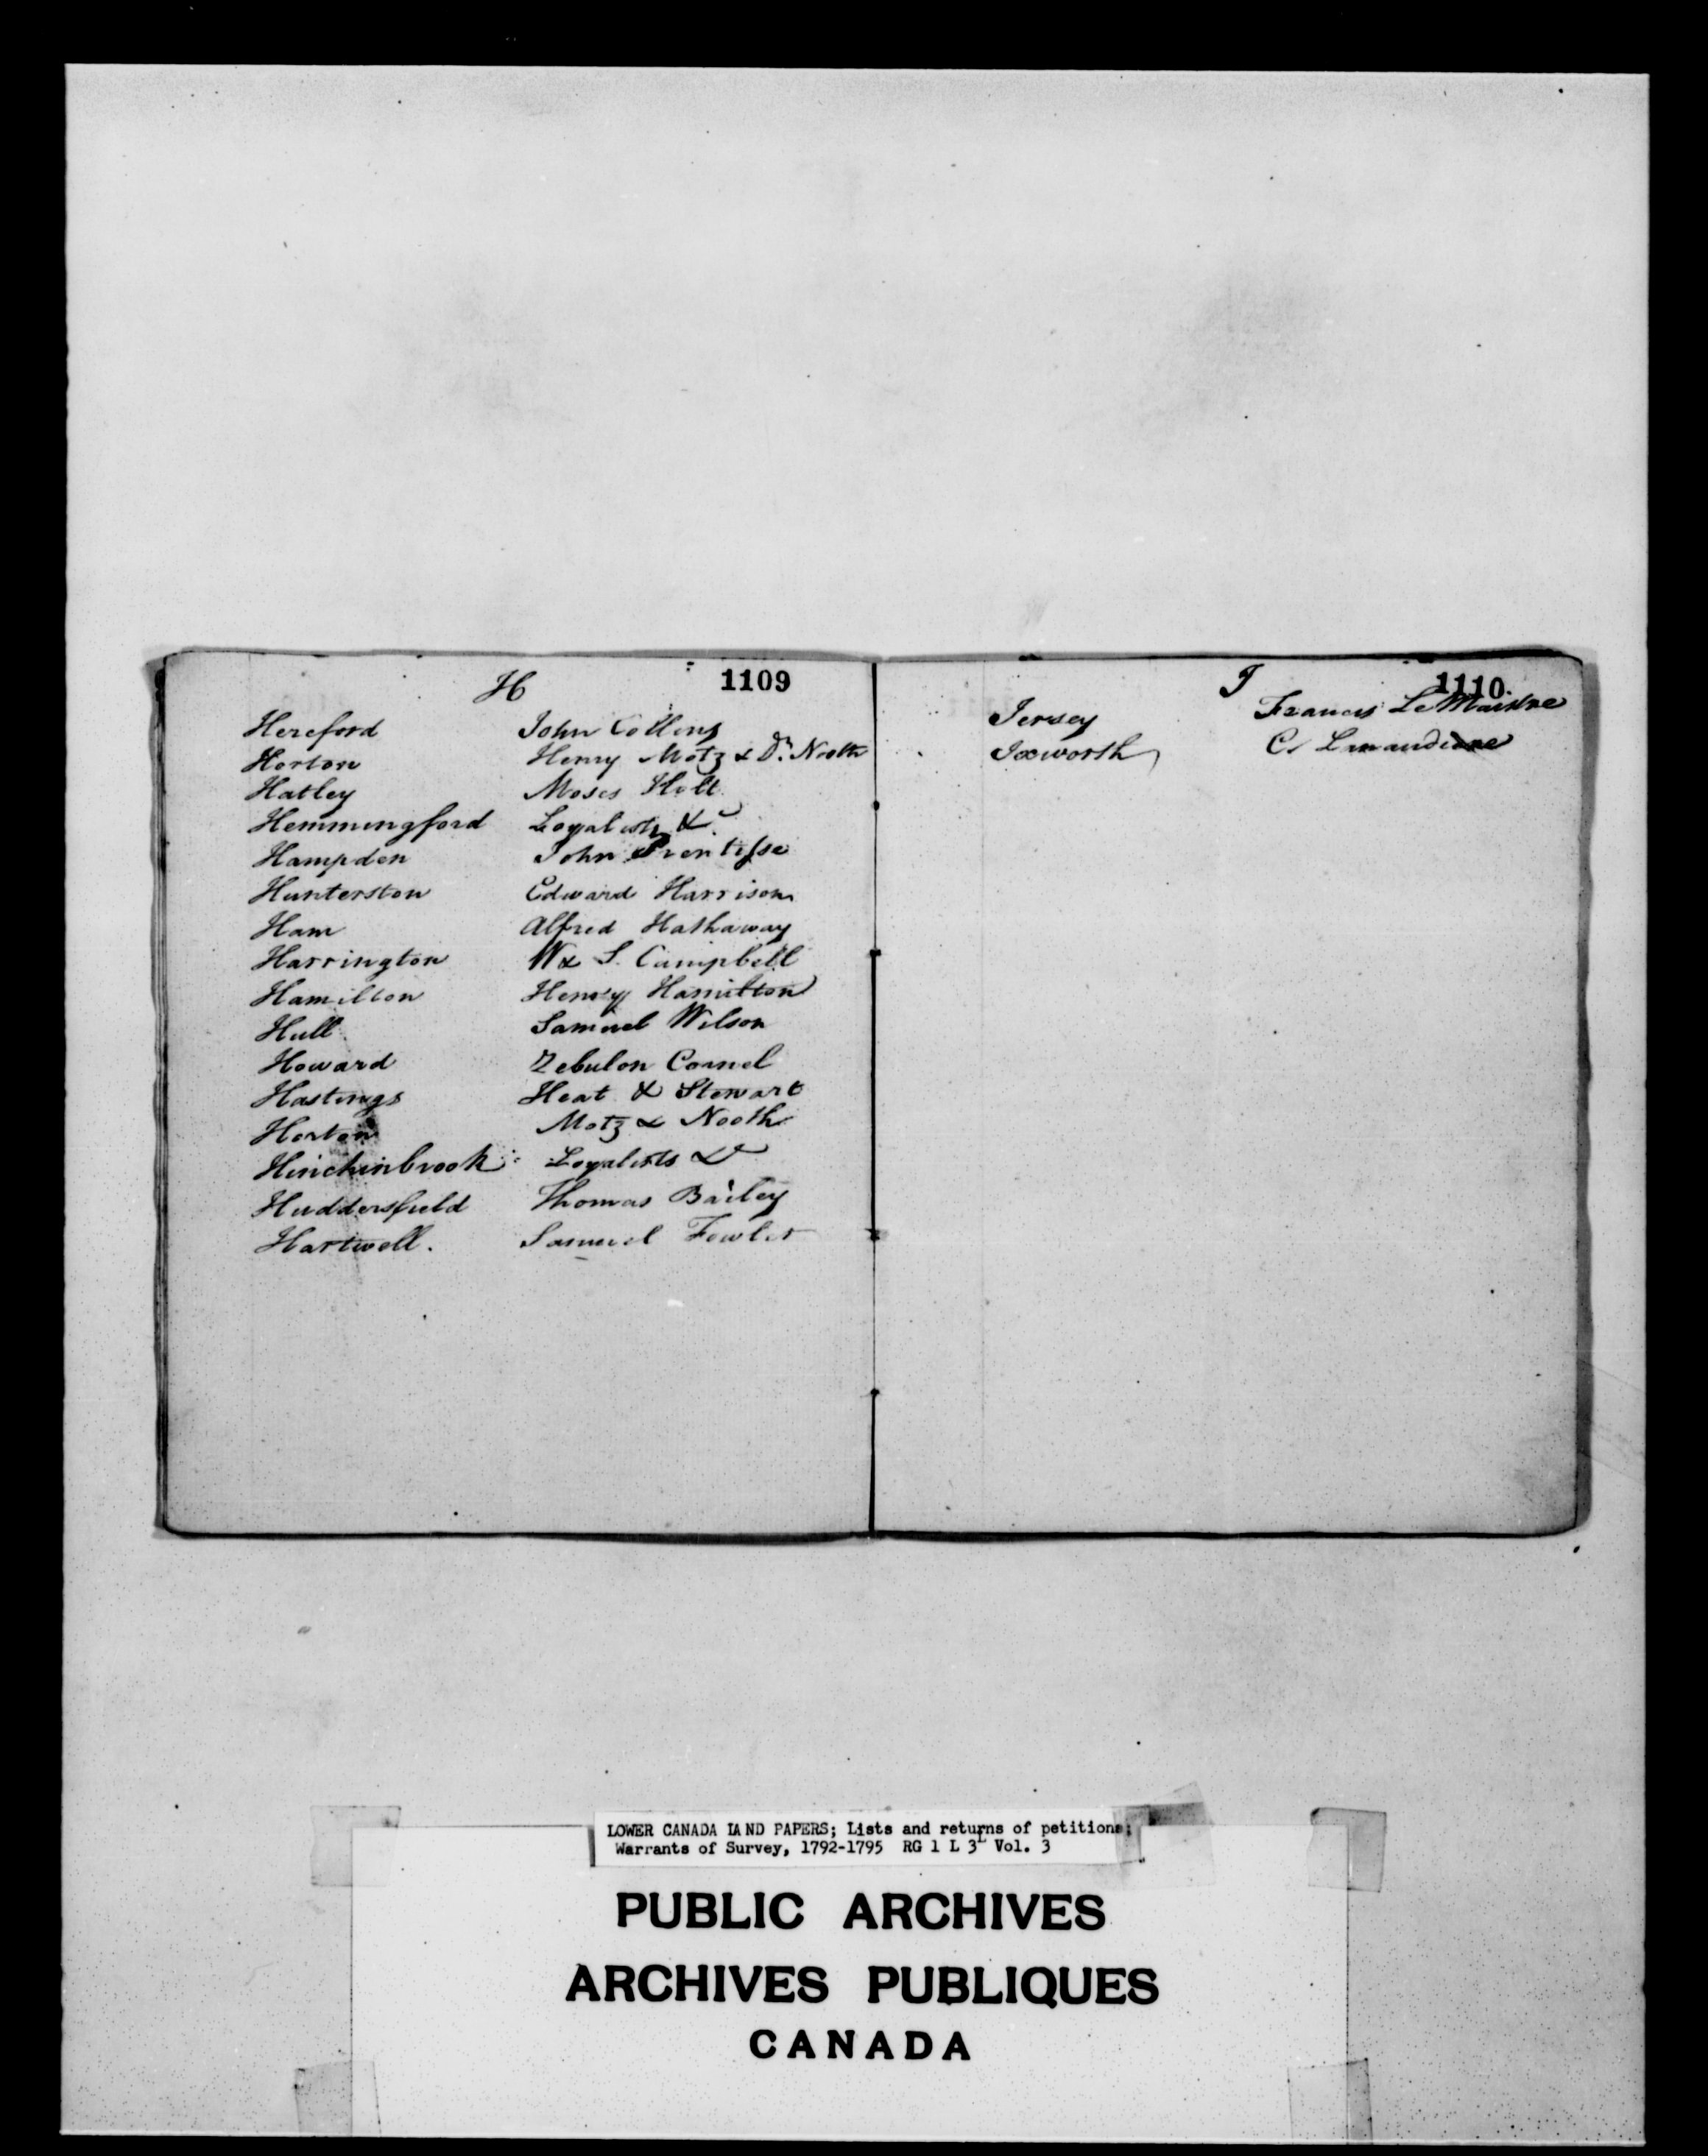 H 1109
Hereford John Collins
Horton Henry Motz & Dr. Nooth
Hatley Moses Holt
Hemmingford Loyalists &c.
Hampden John Prentisse
Hunterston Edward Harrison
Ham Alfred Hathaway
Harrington W & S. Campbell
Hamilton Henry Hamilton
Hull Samuel Wilson
Howard Zebulon Cornel
Hastings Heat & Stewart
Horton Motz & Nooth
Hinchinbrook Loyalists &c
Huddersfield Thomas Bailey
Hartwell. Samuel Fowler
I 1110.
Jersey Francis Le Maistre
Ixworth C. Lanaudiere
LOWER CANADA LAND PAPERS; Lists and returns of petitions;
Warrants of Survey, 1792-1795 RG 1 L 3L Vol. 3
PUBLIC ARCHIVES
ARCHIVES PUBLIQUES
CANADA